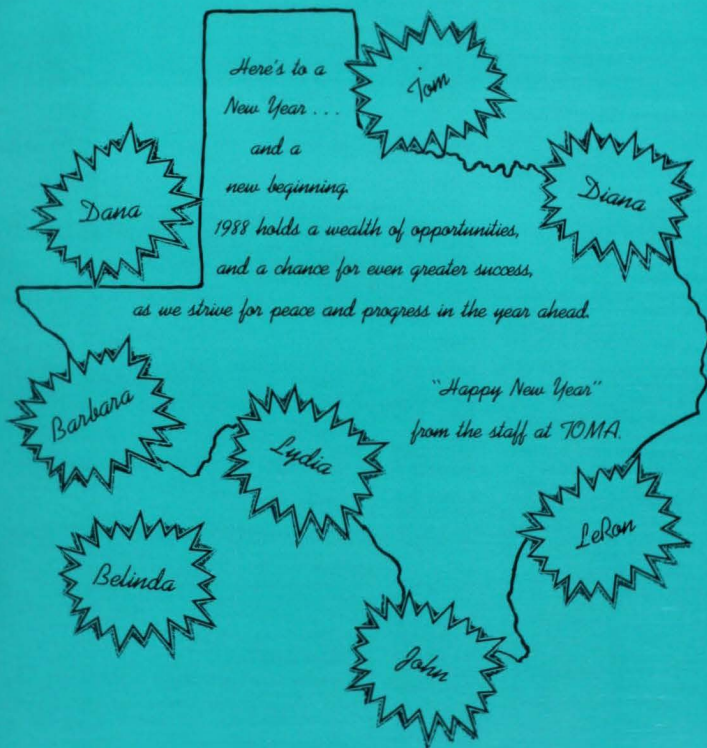 Here's to a
New Year ...
and a
new beginning.
1988 holds a wealth of opportunities,
and a chance for even greater success,
as we strive for peace and progress in the year ahead.
"Happy New Year"
from the staff at TOMA.
Tom
Dana
Diana
Barbara
Lydia
Belinda
LeRon
John